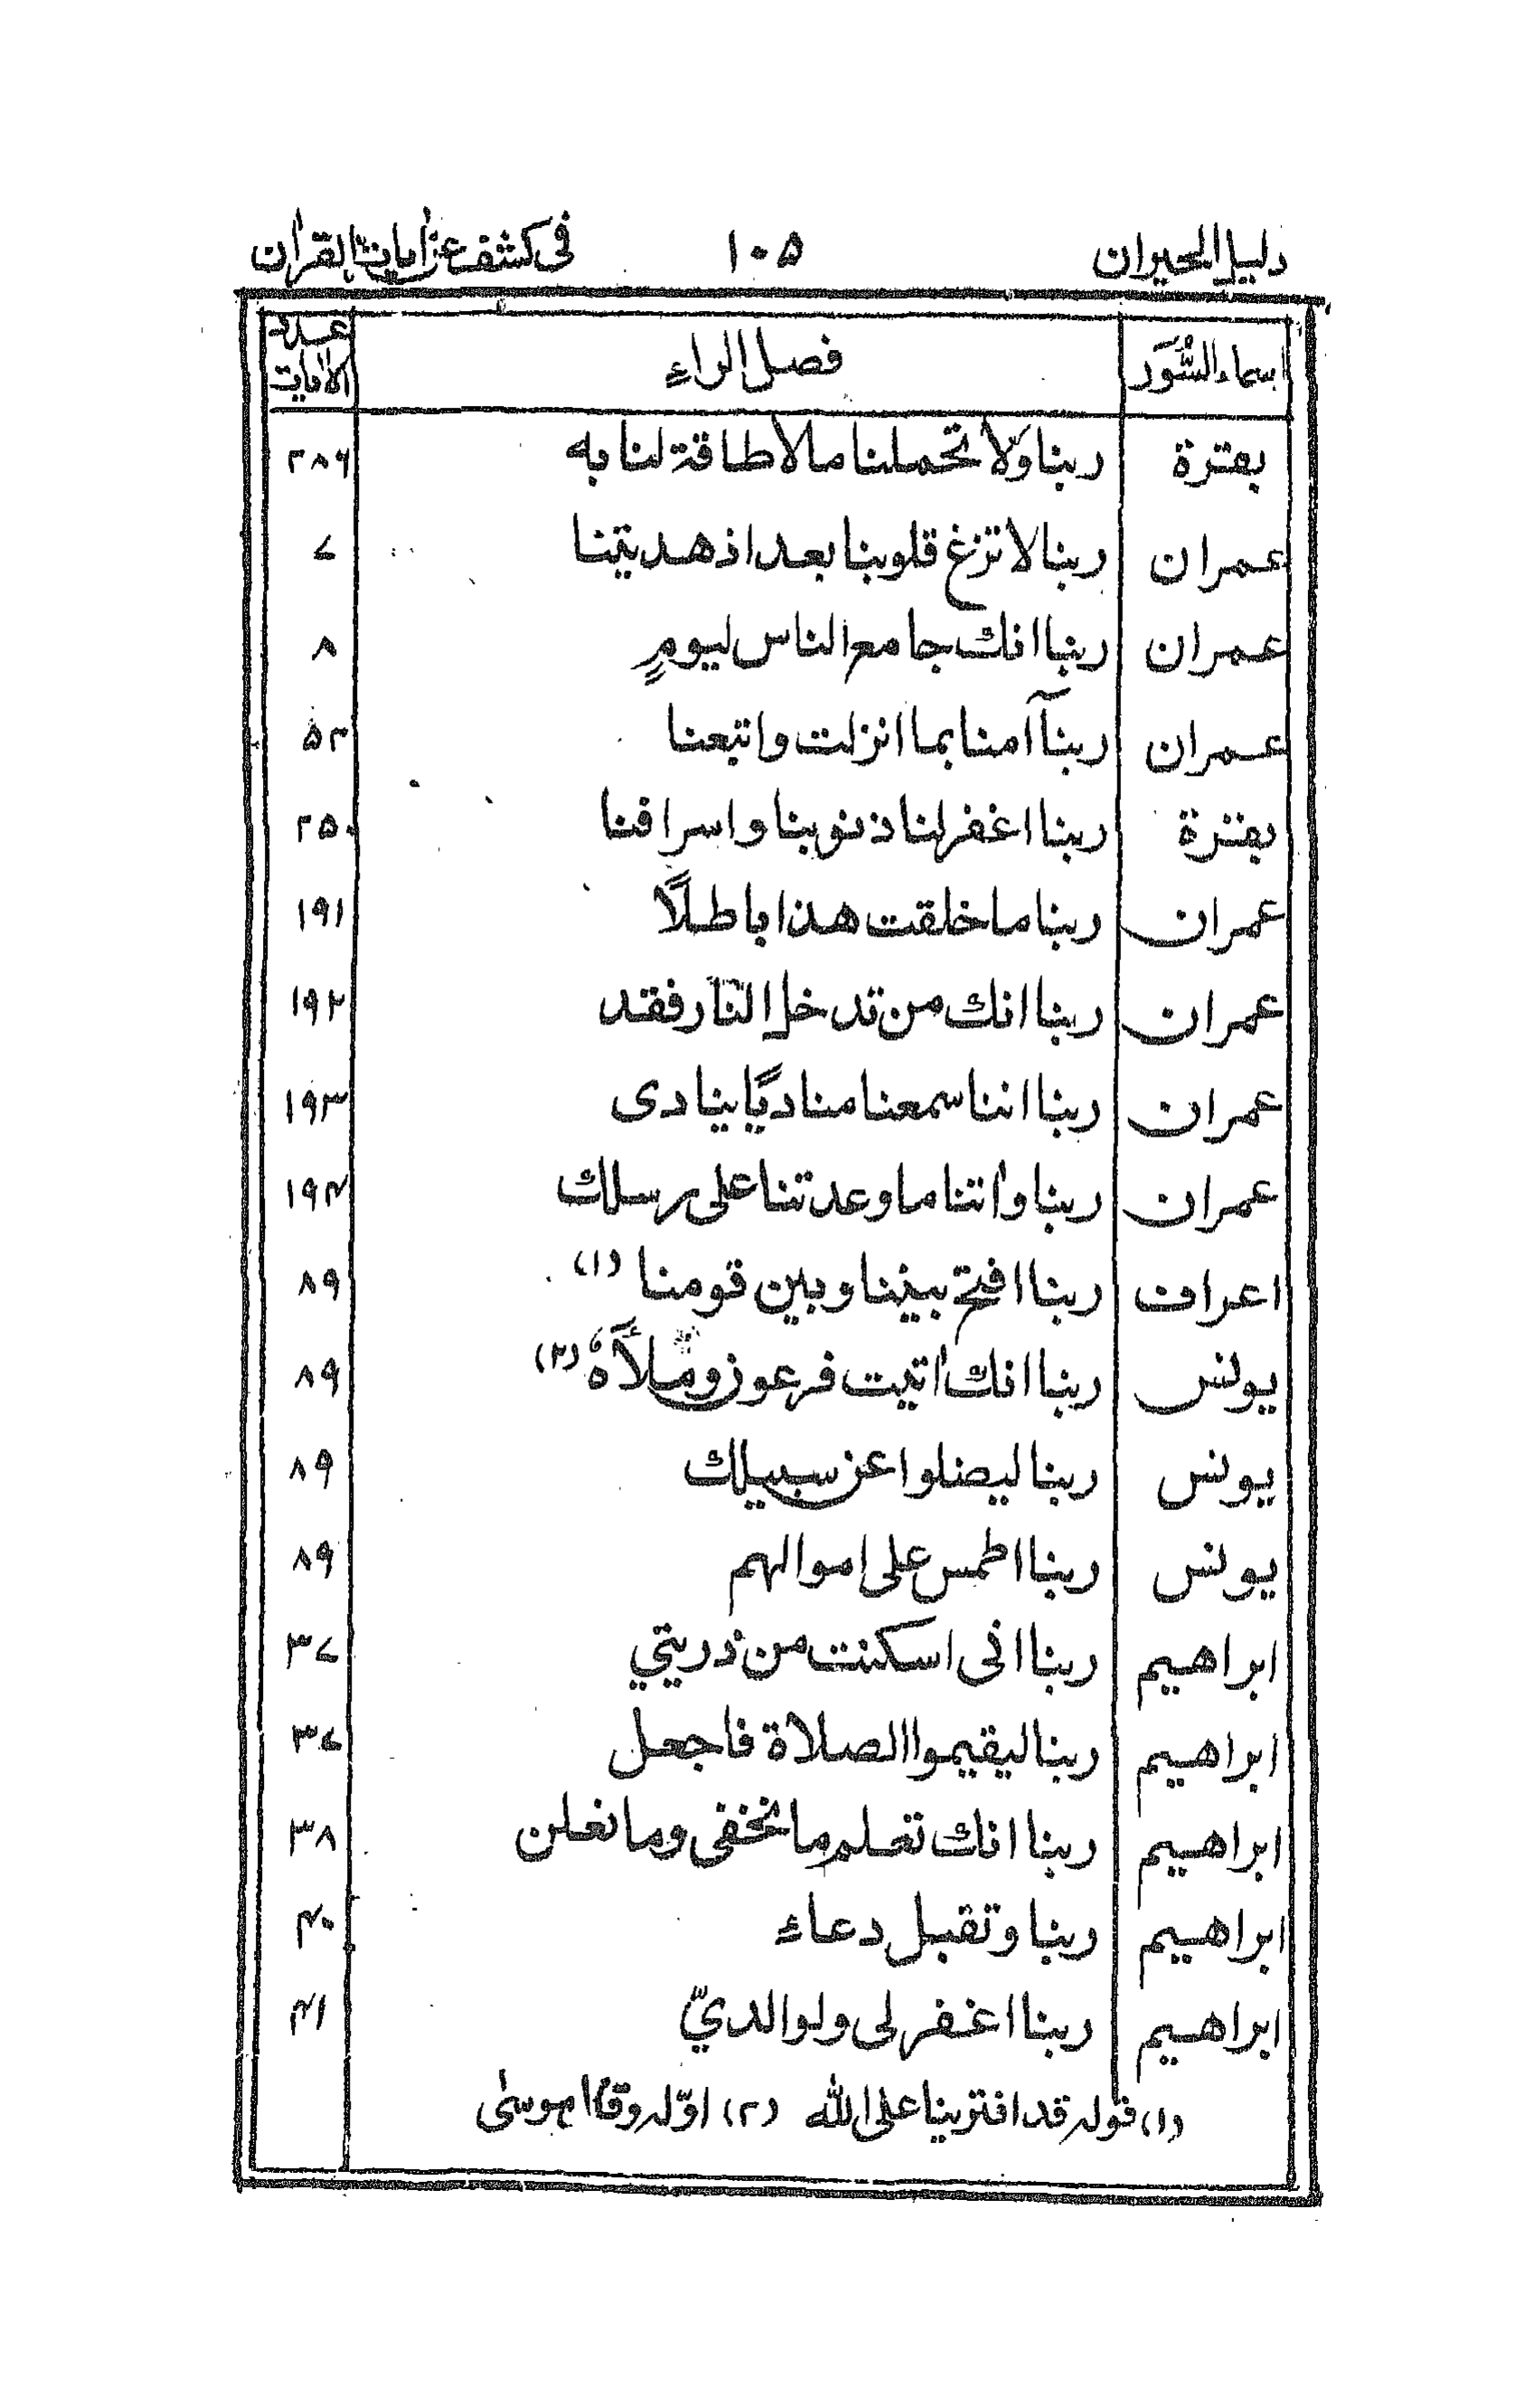 دليل الحيران ١٠٥ فى كشف عن ايات القرآن
اسماء السُّوَر فصل الراءِ عدد الآيات
بقرة ربنا ولا تحملنا مالا طاقة لنا به ٢٨٦
عمران ربنا لا تزغ قلوبنا بعد اذ هديتنا ٧
عمران ربنا انك جامع الناس ليومٍ ٨
عمران ربنآ آمنا بما انزلت واتبعنا ٥٣
بقرة ربنا اغفر لنا ذنوبنا واسرافنا ٢٥٠
عمران ربنا ما خلقت هذا باطلًا ١٩١
عمران ربنا انك من تدخل النار فقد ١٩٢
عمران ربنا اننا سمعنا مناديًا ينادى ١٩٣
عمران ربنا واٰتنا ما وعدتنا على رسلك ١٩٤
اعراف ربنا افتح بيننا وبين قومنا (١) ٨٩
يونس ربنا انك اٰتيت فرعون وملأهٗ (٢) ٨٩
يونس ربنا ليضلوا عن سبيلك ٨٩
يونس ربنا اطمس على اموالهم ٨٩
ابراهيم ربنا انى اسكنت من ذريتي ٣٧
ابراهيم ربنا ليقيموا الصلاة فاجعل ٣٧
ابراهيم ربنا انك تعلم ما نخفى وما نعلن ٣٨
ابراهيم ربنا وتقبل دعاءِ ٤٠
ابراهيم ربنا اغفر لى ولوالديّ ٤١
(١) قوله قد افترينا على الله (٢) اوّله وقال موسىٰ